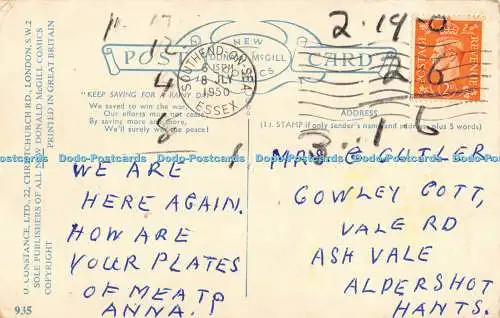 POST CARD
NEW
DONALD McGILL
COMICS
"KEEP SAVING FOR A RAINY DAY"
We saved to win the war,
Our efforts must not cease
By saving more and more,
We'll surely win the peace!
SOUTHEND-ON-SEA
8 JLY
1950
ESSEX
POSTAGE
REVENUE
ADDRESS
(1d. STAMP if only sender's name and address plus 5 words)
D. CONSTANCE, LTD., 22, CHRISTCHURCH RD., LONDON, S.W.2
SOLE PUBLISHERS OF ALL NEW DONALD McGILL COMICS
COPYRIGHT
PRINTED IN GREAT BRITAIN
935
WE ARE
HERE AGAIN.
HOW ARE
YOUR PLATES
OF MEAT?
ANNA!
MRS G CUTLER
COWLEY COTT,
VALE RD
ASH VALE
ALDERSHOT
HANTS.
11 17
12
4
8
1
2.19.0
2 6
3.1 6
Dodo-Postcards Dodo-Postcards Dodo-Postcards Dodo-Postcards Dodo-Postcards Dodo-Postcards